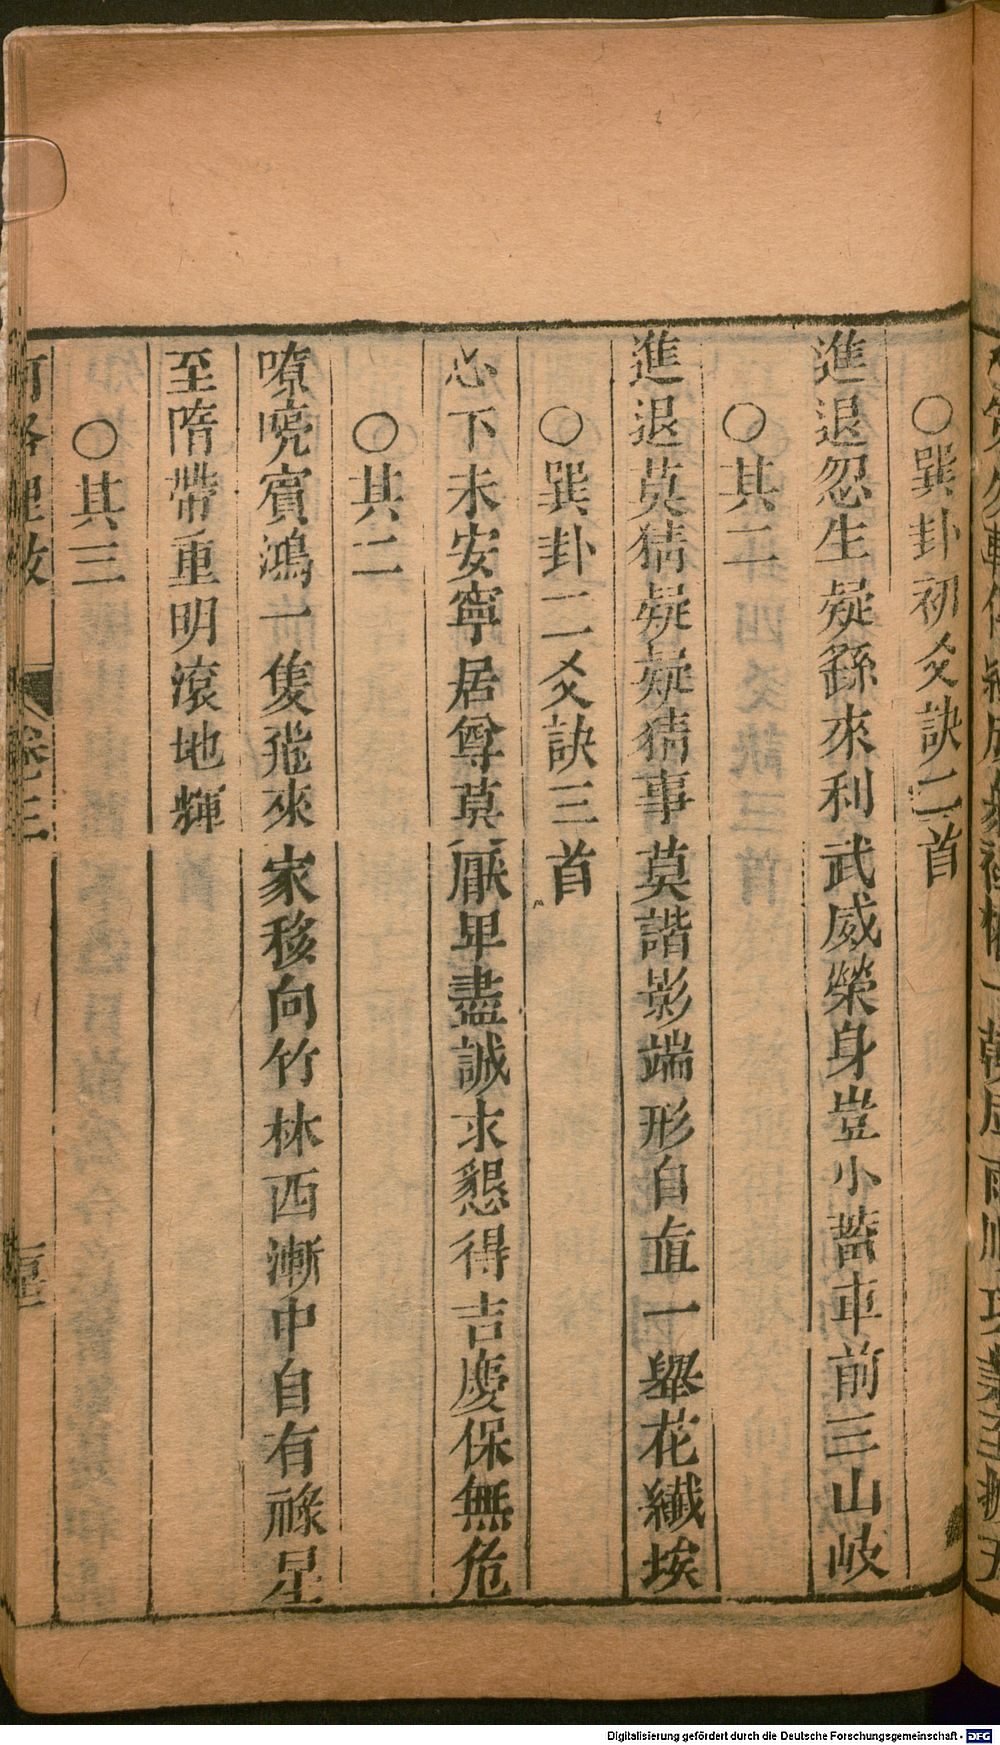 ○巽卦初爻訣二首
進退忽生疑繇來利武威榮身豈小蓄車前三山岐
○其二
進退莫猜疑疑猜事莫諧影端形自直一舉花纖埃
○巽卦二爻訣三首
心下未安寧居尊莫厭卑盡誠求懇得吉慶保無危
○其二
嘹喨賓鴻一隻飛來家移向竹林西漸中自有祿星
至隋帶重明滾地輝
○其三
河洛理數 卷三
Digitalisierung gefördert durch die Deutsche Forschungsgemeinschaft - DFG